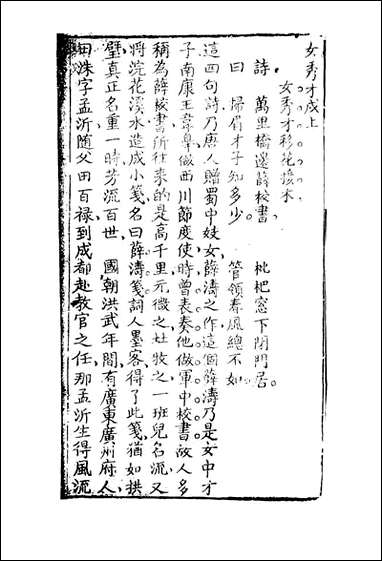 女秀才戍上
女秀才移花接木
詩　萬里橋邊薛校書　枇杷窓下閉門居
曰　掃眉才子知多少　管領春風總不如
這四句詩乃唐人贈蜀中妓女薛濤之作這個薛濤乃是女中才
子南康王韋皐做西川節度使時曾表奏他做軍中校書故人多
稱為薛校書所徃来的是高千里元微之杜牧之一班兒名流又
將浣花溪水造成小箋名曰薛濤箋詞人墨客得了此箋猶如拱
璧真正名重一時芳流百世　國朝洪武年間有廣東廣州府人
田洙字孟沂随父田百禄到成都赴教官之任那孟沂生得風流